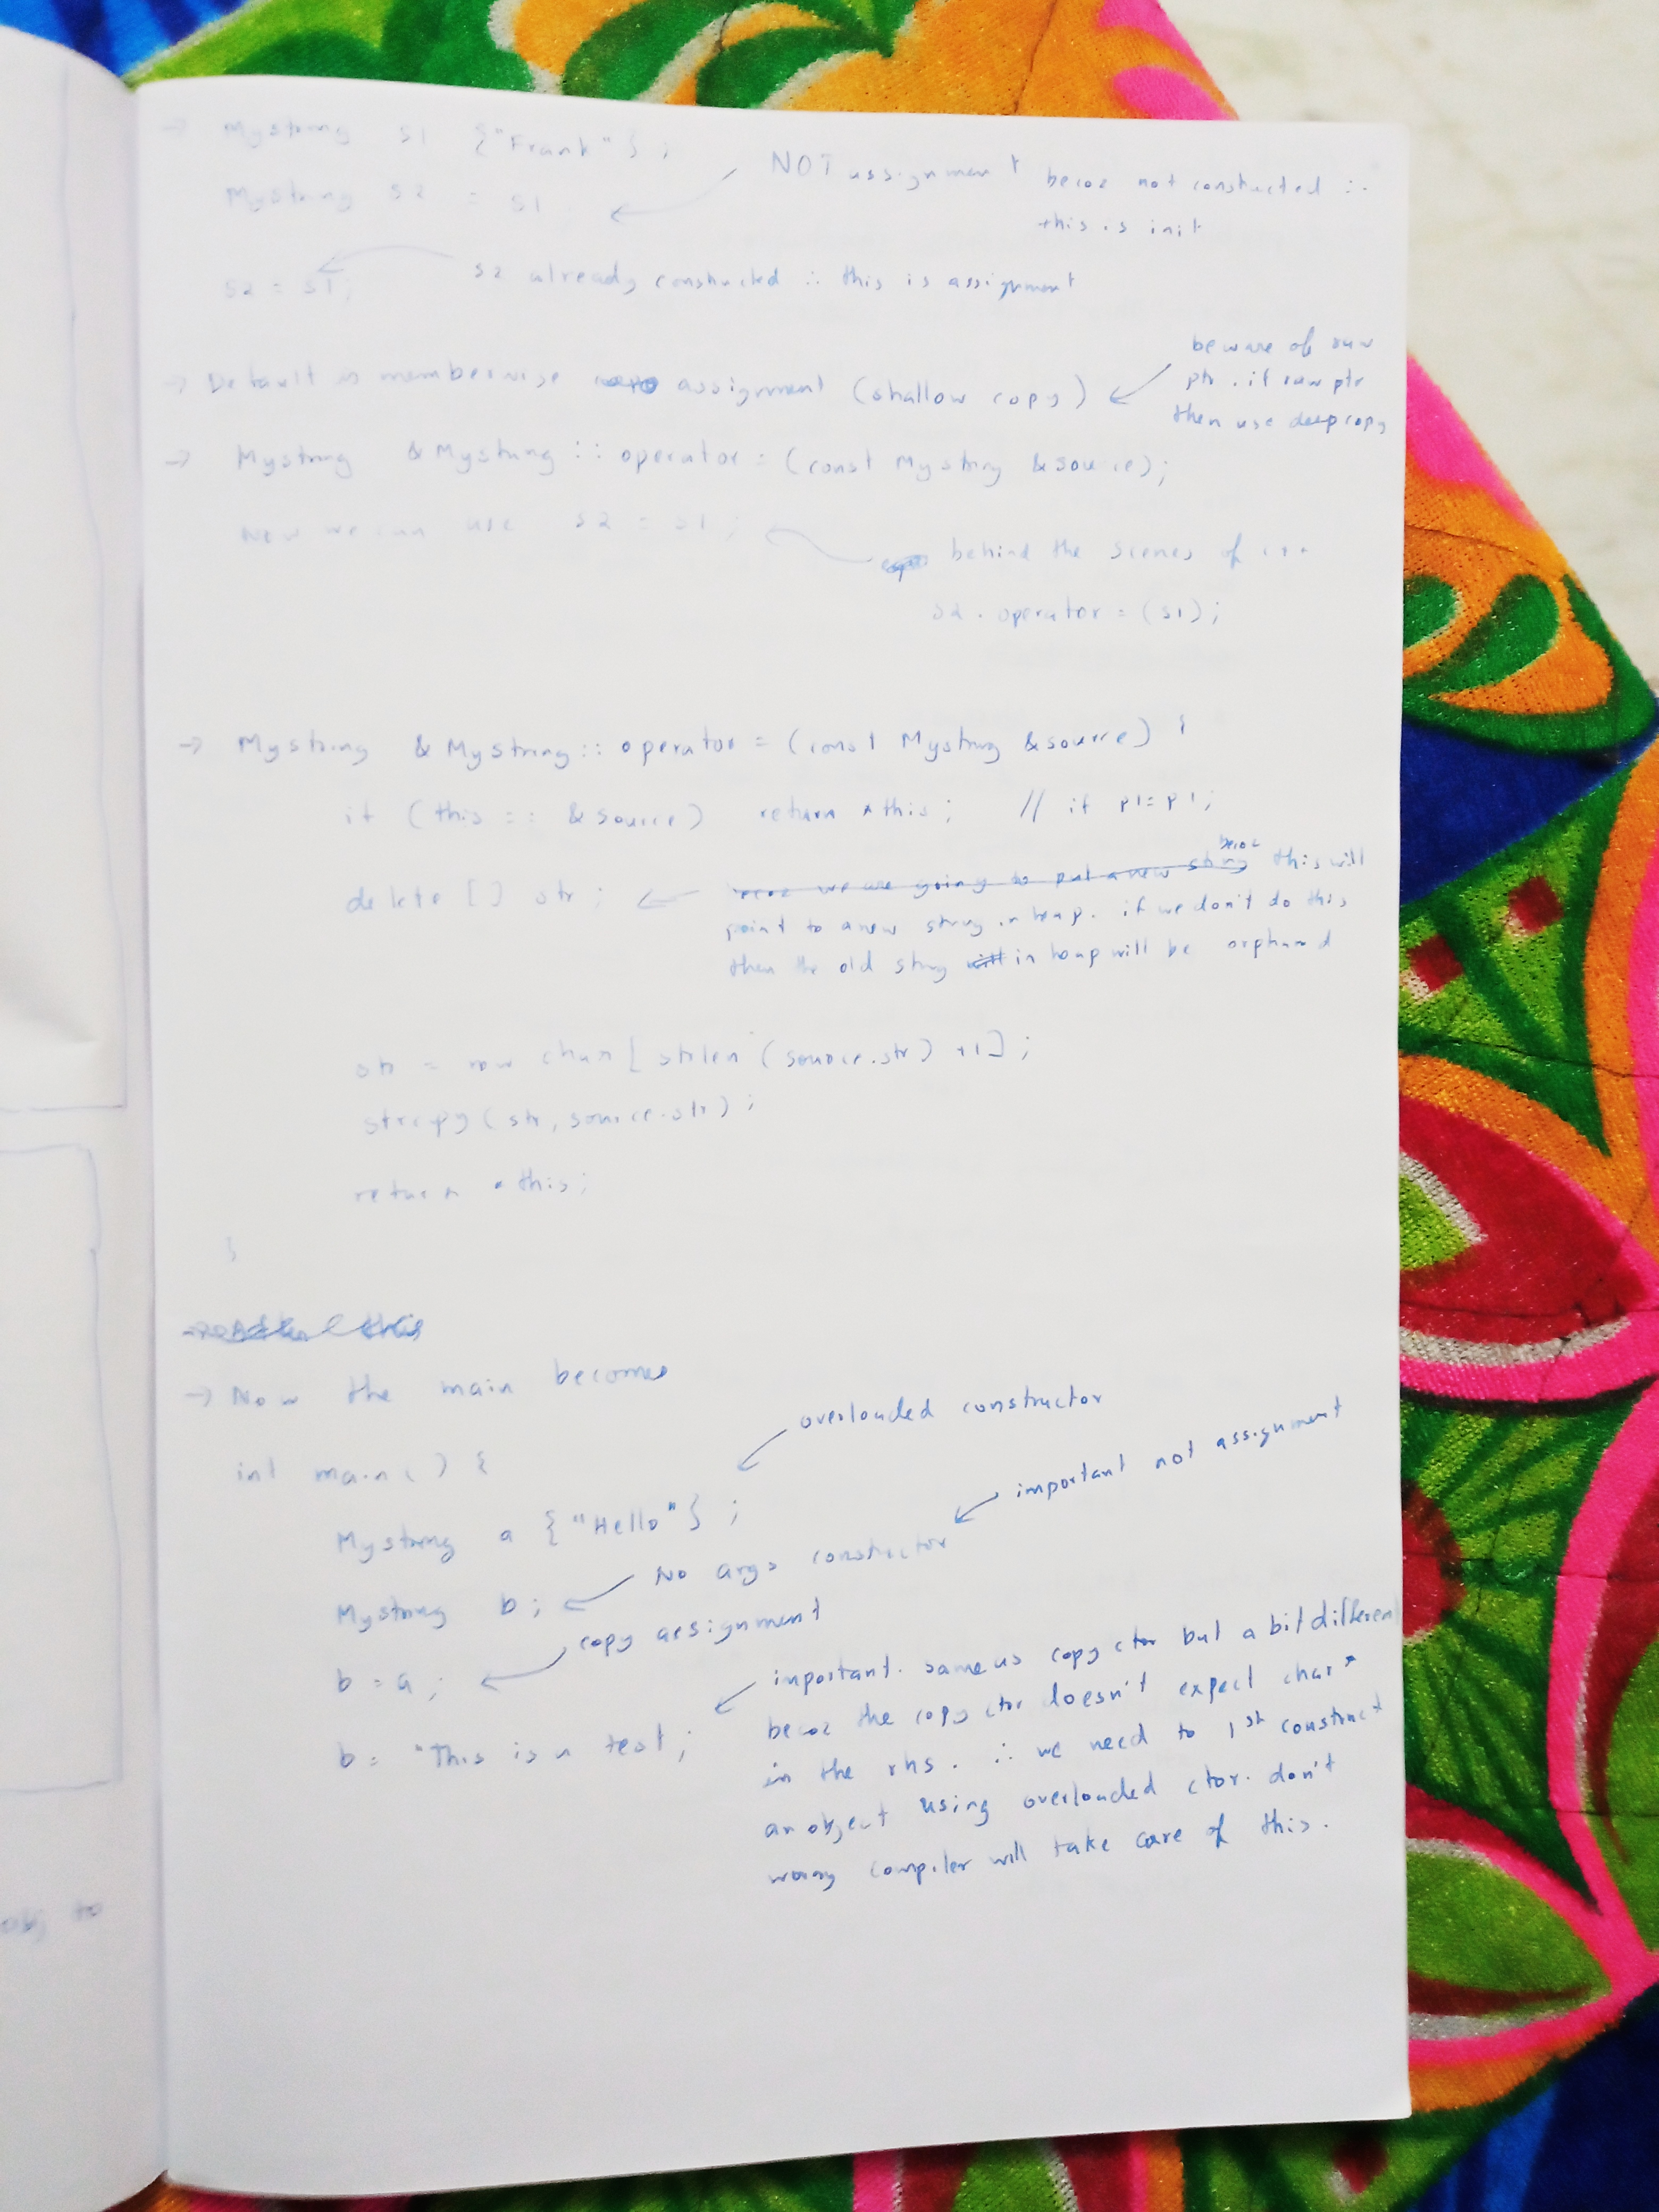 → Mystring s1 {"Frank"};
Mystring s2 = s1 NOT assignment becoz not constructed ∴
this is init
s2 = s1; s2 already constructed ∴ this is assignment
→ Default is memberwise assignment (shallow copy)
beware of raw
ptr. if raw ptr
then use deep copy
→ Mystring &Mystring::operator=(const Mystring &source);
Now we can use s2 = s1;
behind the scenes of c++
s2.operator=(s1);
→ Mystring &Mystring::operator=(const Mystring &source) {
if (this == &source) return *this; // if p1=p1;
delete [] str; becoz we are going to put a new string becoz this will
point to a new string in heap. if we don't do this
then the old string in heap will be orphand
str = new char[strlen(source.str) +1];
strcpy(str, source.str);
return *this;
}
→ Now the main becomes
int main() {
overloaded constructor
Mystring a {"Hello"};
important not assignment
Mystring b; No args constructor
b = a; copy assignment
b = "This is a test;
important. same as copy ctor but a bit different
becoz the copy ctor doesn't expect char*
in the rhs. ∴ we need to 1st construct
an object using overloaded ctor. don't
worry compiler will take care of this.
obj to